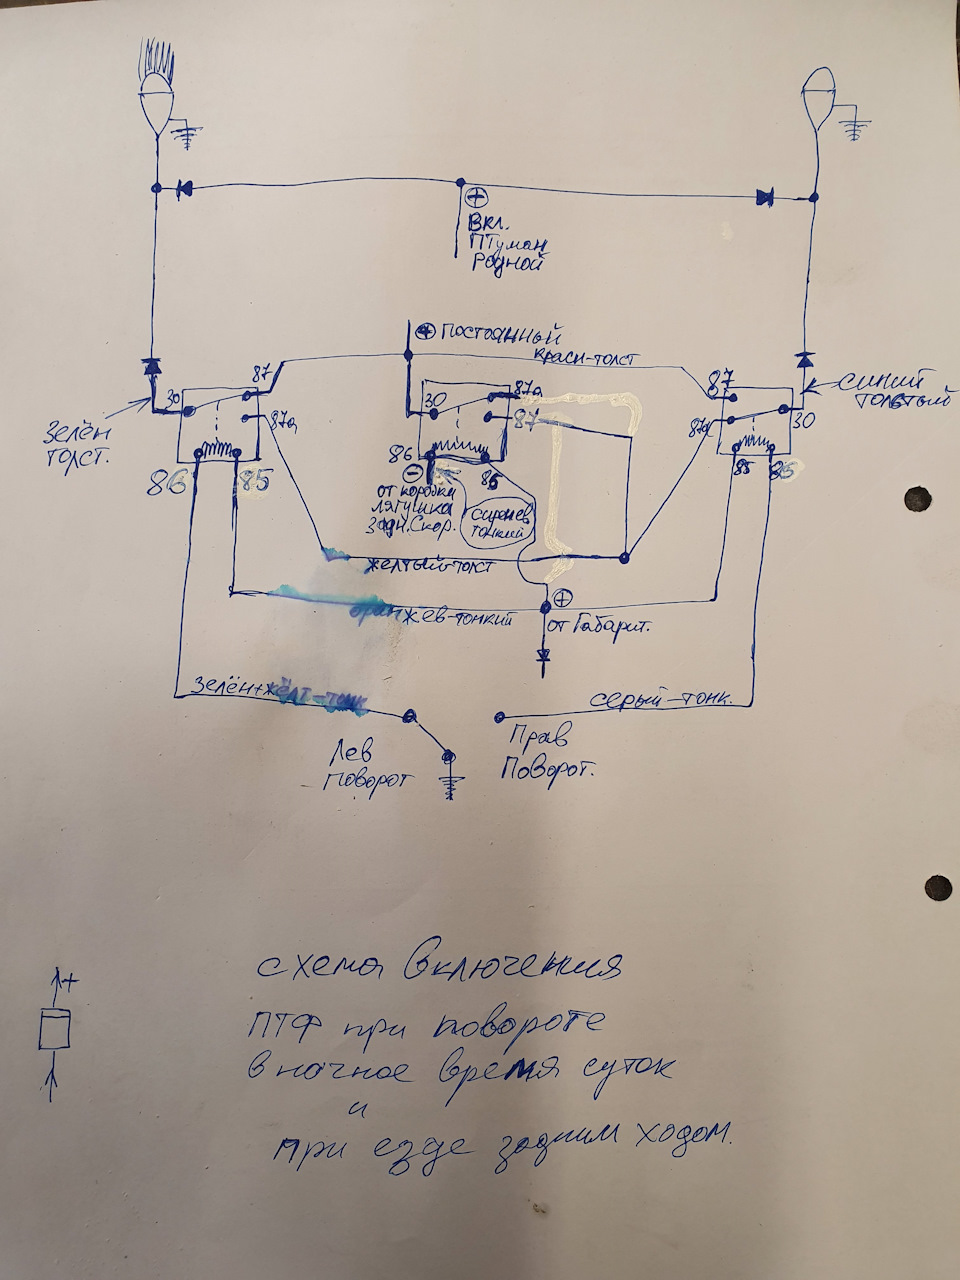 +
Вкл.
ПТуман
Родной
+ Постоянный
красн-толст
87
30
87а
86
85
Зелён
толст.
87а
30
87
86
85
-
от коробки
лягушка
задн. Скор.
сиренев
тонкий
87
87а
30
85
86
синий
толстый
желтый-толст
оранжев-тонкий
+
от Габарит.
зелён+жёлт-тонк
серый-тонк.
Лев
поворот
Прав
Поворот.
+
схема включения
ПТФ при повороте
в ночное время суток
и
при езде задним ходом.